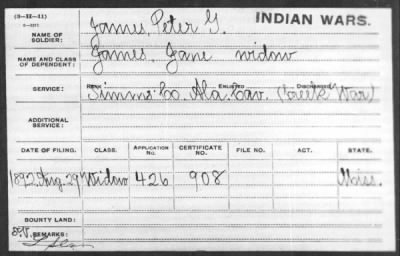 (3-II-11)
INDIAN WARS.
NAME OF SOLDIER: James, Peter G.
NAME AND CLASS OF DEPENDENT: James, Jane widow
SERVICE: RANK ENLISTED DISCHARGED
Simms' Co. Ala. Cav. (Creek War)
ADDITIONAL SERVICE:
DATE OF FILING. CLASS. APPLICATION No. CERTIFICATE No. FILE No. ACT. STATE.
1892, Aug. 29 Widow 426 908 Miss.
BOUNTY LAND:
REMARKS: